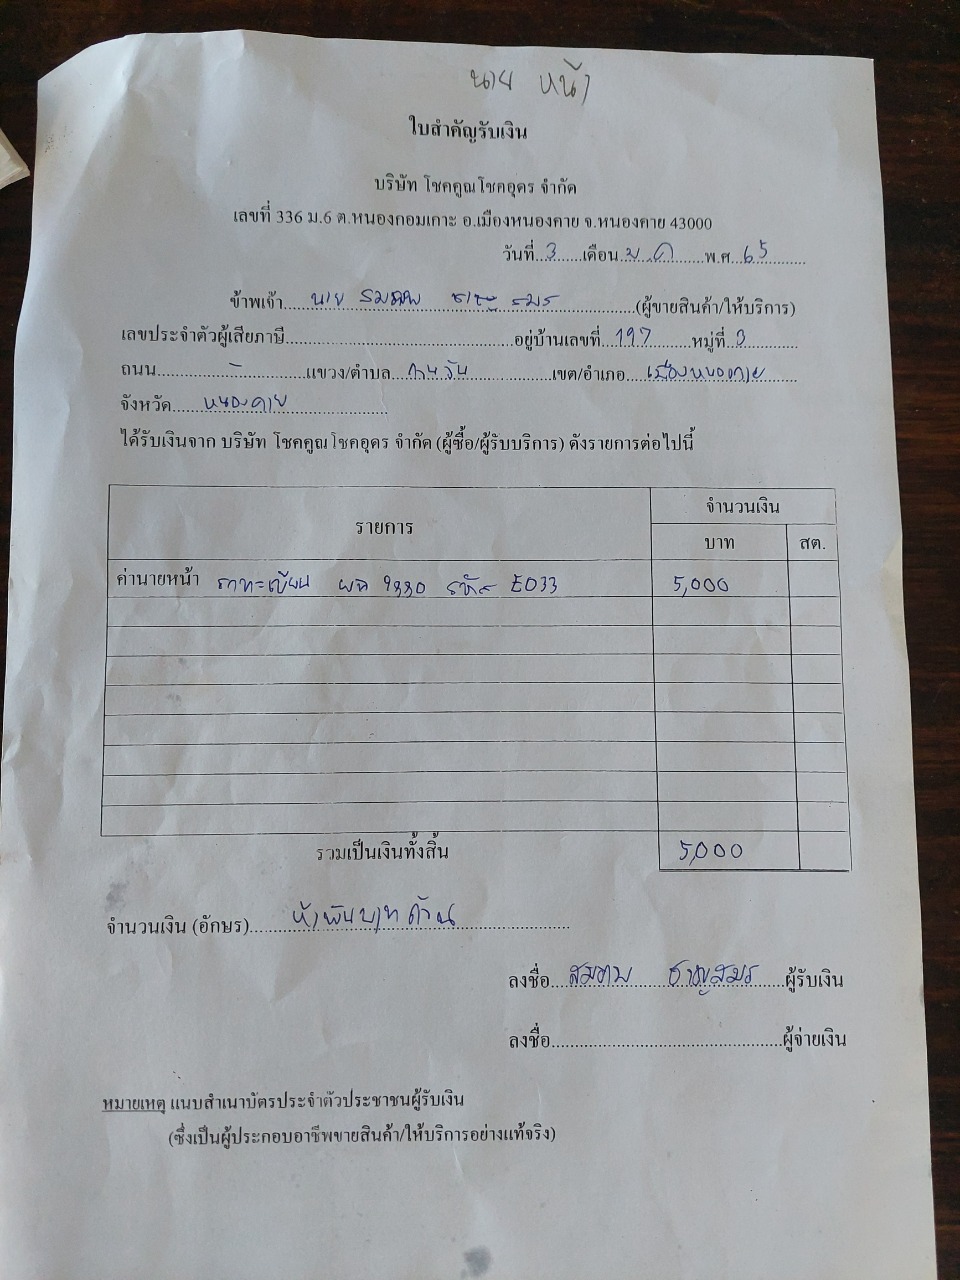 นาย หน้า
ใบสำคัญรับเงิน
บริษัท โชคคูณโชคอุดร จำกัด
เลขที่ 336 ม.6 ต.หนองกอมเกาะ อ.เมืองหนองคาย จ.หนองคาย 43000
วันที่ 3 เดือน ม.ค พ.ศ. 65
ข้าพเจ้า นาย (ผู้ขายสินค้า/ให้บริการ)
เลขประจำตัวผู้เสียภาษี อยู่บ้านเลขที่ 197 หมู่ที่ 3
ถนน - แขวง/ตำบล เขต/อำเภอ เมืองหนองคาย
จังหวัด หนองคาย
ได้รับเงินจาก บริษัท โชคคูณโชคอุดร จำกัด (ผู้ซื้อ/ผู้รับบริการ) ดังรายการต่อไปนี้
รายการ จำนวนเงิน
บาท สต.
ค่านายหน้า 5,000
รวมเป็นเงินทั้งสิ้น 5,000
จำนวนเงิน (อักษร) ห้าพันบาทถ้วน
ลงชื่อ ชาญสมร ผู้รับเงิน
ลงชื่อ ผู้จ่ายเงิน
หมายเหตุ แนบสำเนาบัตรประจำตัวประชาชนผู้รับเงิน
(ซึ่งเป็นผู้ประกอบอาชีพขายสินค้า/ให้บริการอย่างแท้จริง)